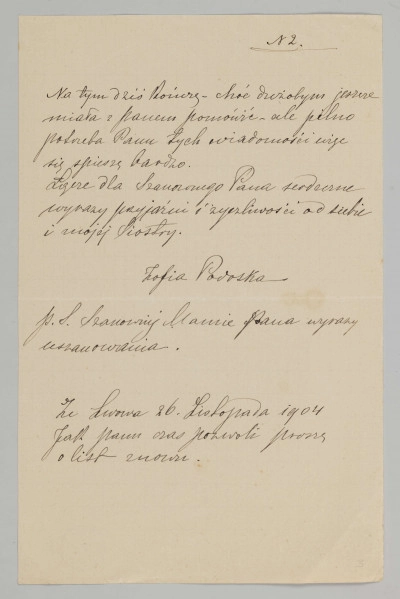 N 2.
Na tym dziś kończę - choć dużobym jeszcze
miała z panem pomówić - ale pilno
potrzeba Panu tych wiadomości więc
się spieszę bardzo.
Łączę dla Szanownego Pana serdeczne
wyrazy przyjaźni i życzliwości od siebie
i mojej Siostry.
Zofia Podoska
p. S. Szanownej Mamie Pana wyrazy
uszanowania.
Ze Lwowa 26. Listopada 1904
Jak panu czas pozwoli proszę
o list znowu.